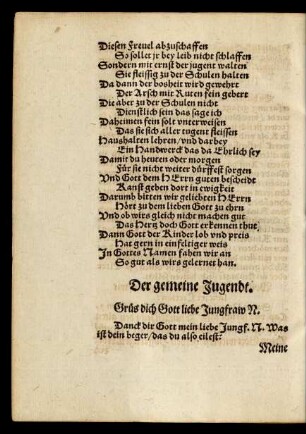 Diesen Freuel abzuschaffen
So sollet jr bey leib nicht schlaffen
Sondern mit ernst der jugent walten
Sie fleissig zu der Schulen halten
Da dann der bosheit wird gewehrt
Der Arsch mit Ruten fein gebert
Die aber zu der Schulen nicht
Dienstlich sein das sage ich
Daheimen fein solt vnterweisen
Das sie sich aller tugent fleissen
Haushalten lehren/vnd darbey
Ein Handwerck das da Ehrlich sey
Damit du heuten oder morgen
Für sie nicht weiter dürffest sorgen
Vnd Gott dem HErrn guten bescheidt
Kanst geben dort in ewigkeit
Darumb bitten wir gelichten HErrn
Hört zu dem lieben Gott zu ehrn
Vnd ob wirs gleich nicht machen gut
Das Hertz doch Gott erkennen thut
Dann Gott der Kinder lob vnd preis
Hat gern in einfeltiger weis
In Gottes Namen fahen wir an
So gut als wirs gelernet han.
Der gemeine Jugendt.
Grüs dich Gott liebe Jungfraw N.
Danck dir Gott mein liebe Jungf. N. Was
ist dein beger/das du also eilest?
Meine